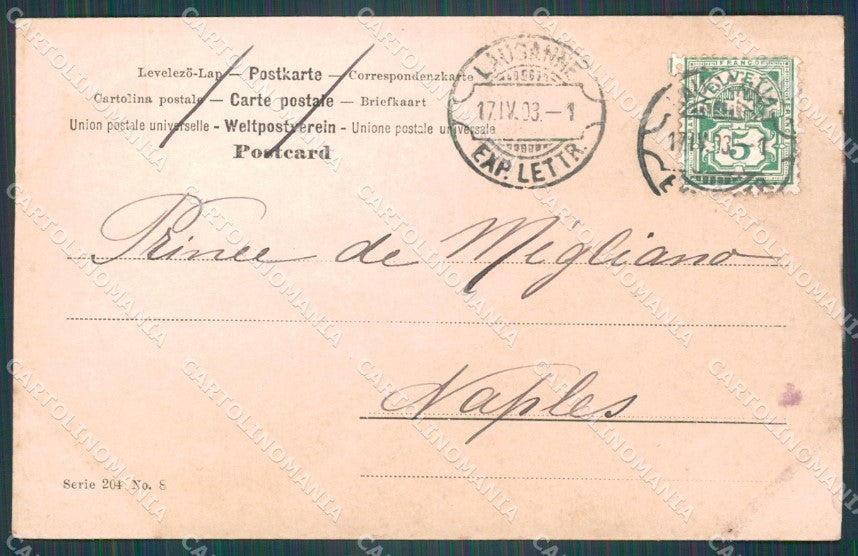 Levelező-Lap — Postkarte — Correspondenzkarte
Cartolina postale — Carte postale — Briefkaart
Union postale universelle - Weltpostverein - Unione postale universale
Postcard
LAUSANNE
17.IV.03. — 1
EXP. LETTR.
FRANCO
HELVETIA
5
17.IV.03. — 1
Prince de Migliano
Naples
Serie 204 No. 8
CARTOLINOMANIA